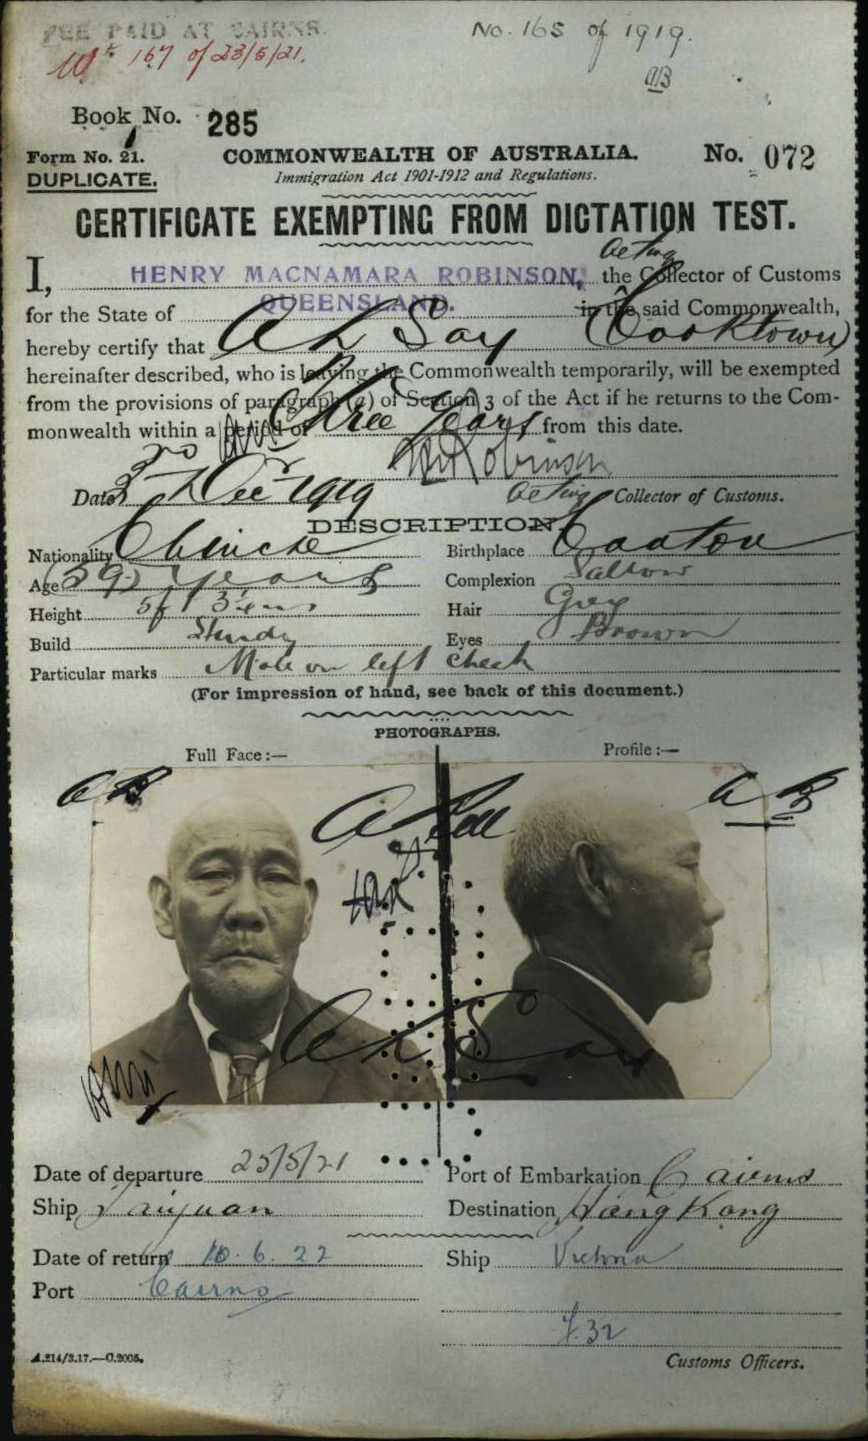 FEE PAID AT CAIRNS.
No. 165 of 1919.
167 of 23/5/21.
Book No. 285
Form No. 21.
COMMONWEALTH OF AUSTRALIA.
No. 072
DUPLICATE.
Immigration Act 1901-1912 and Regulations.
CERTIFICATE EXEMPTING FROM DICTATION TEST.
Acting
I, HENRY MACNAMARA ROBINSON, the Collector of Customs
for the State of QUEENSLAND. in the said Commonwealth,
hereby certify that Ah Say (Cooktown)
hereinafter described, who is leaving the Commonwealth temporarily, will be exempted
from the provisions of paragraph (a) of Section 3 of the Act if he returns to the Com-
monwealth within a period of Three Years from this date.
HMRobinson
Date 3rd Decr 1919
Acting Collector of Customs.
DESCRIPTION
Nationality Chinese
Birthplace Canton
Age 59 years
Complexion Sallow
Height 5ft 3ins
Hair Grey
Build Sturdy
Eyes Brown
Particular marks Mole on left cheek
(For impression of hand, see back of this document.)
PHOTOGRAPHS.
Full Face :—
Profile :—
Ah Say
Date of departure 25/5/21
Port of Embarkation Cairns
Ship Taiyuan
Destination Hong Kong
Date of return 10.6.22
Ship Victoria
Port Cairns
Customs Officers.
A.214/3.17.—C.2005.